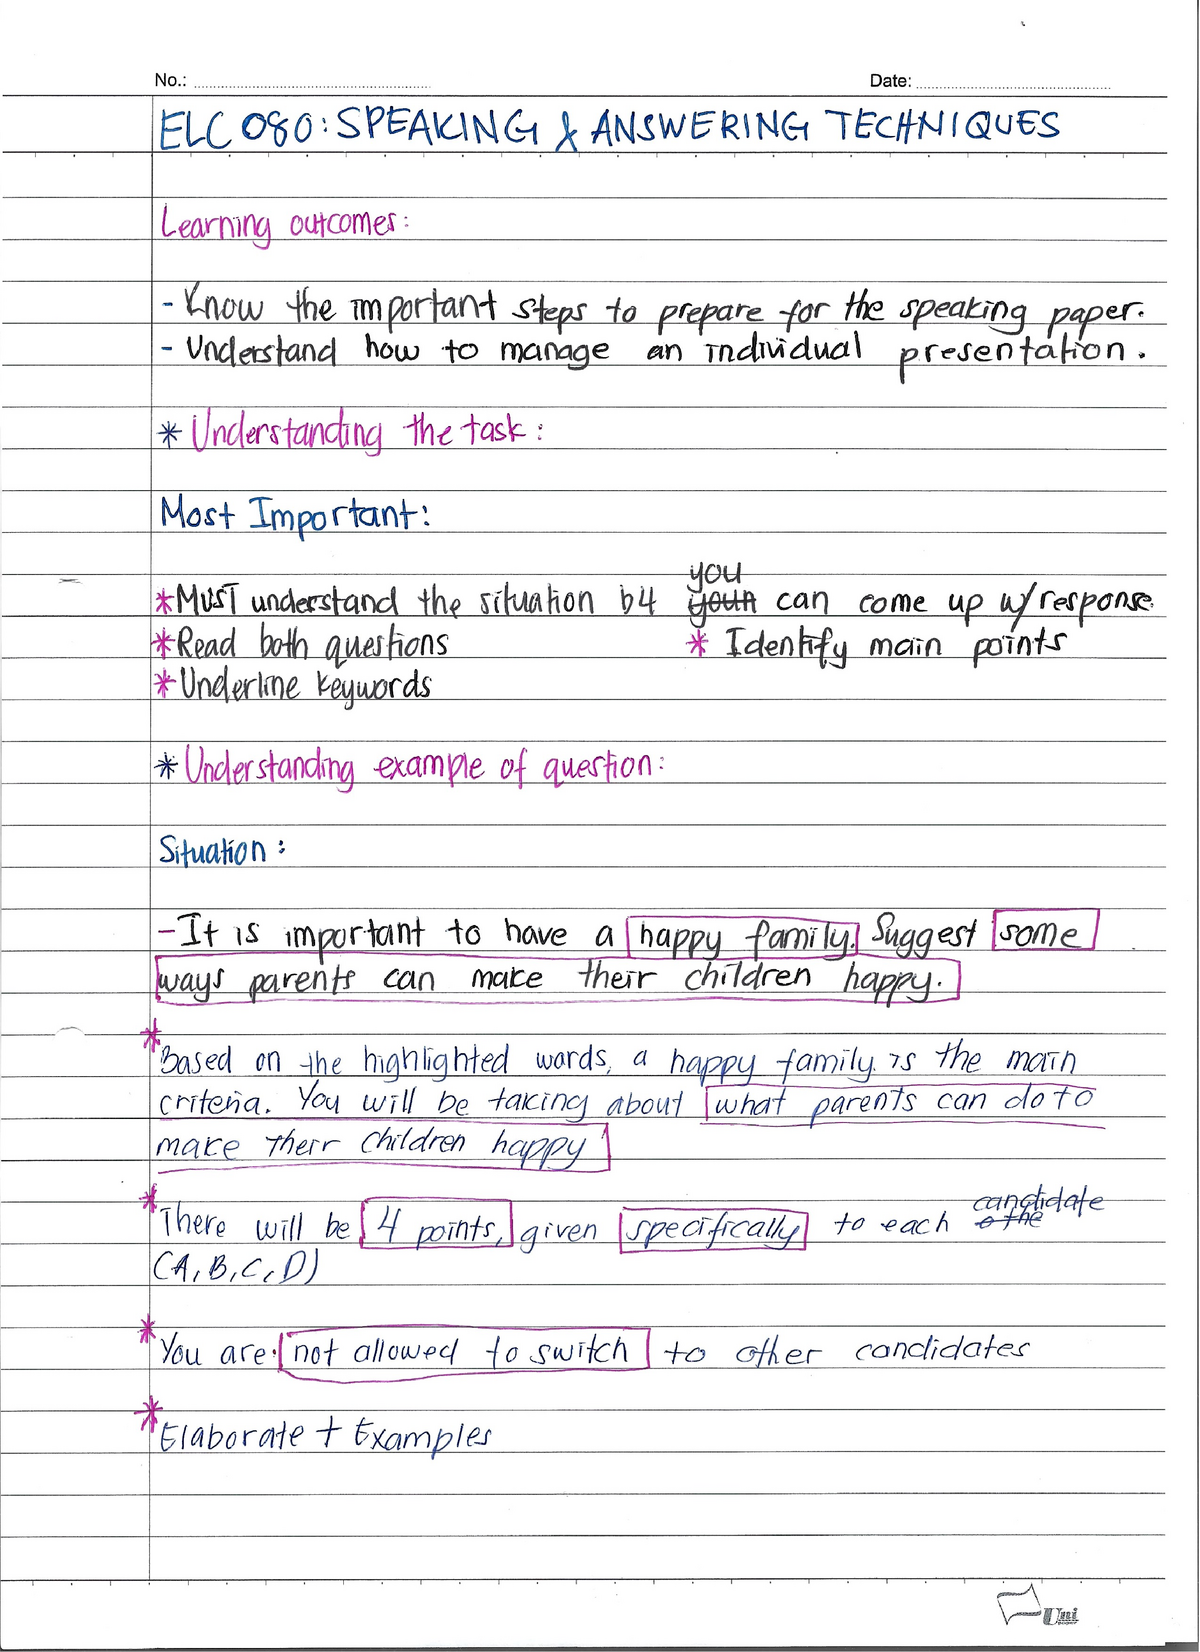 No.: Date:
ELC 080: SPEAKING & ANSWERING TECHNIQUES
Learning outcomes:
- Know the important steps to prepare for the speaking paper.
- Understand how to manage an individual presentation.
* Understanding the task:
Most Important:
you
*MUST understand the situation b4 can come up w/ response.
*Read both questions * Identify main points
*Underline keywords
* Understanding example of question:
Situation:
-It is important to have a happy family. Suggest some
ways parents can make their children happy.
*Based on the highlighted words, a happy family is the main
criteria. You will be talking about what parents can do to
make their children happy
candidate
*There will be 4 points, given specifically to each o the
(A, B, C, D)
*You are not allowed to switch to other candidates
*Elaborate + Examples
Uni